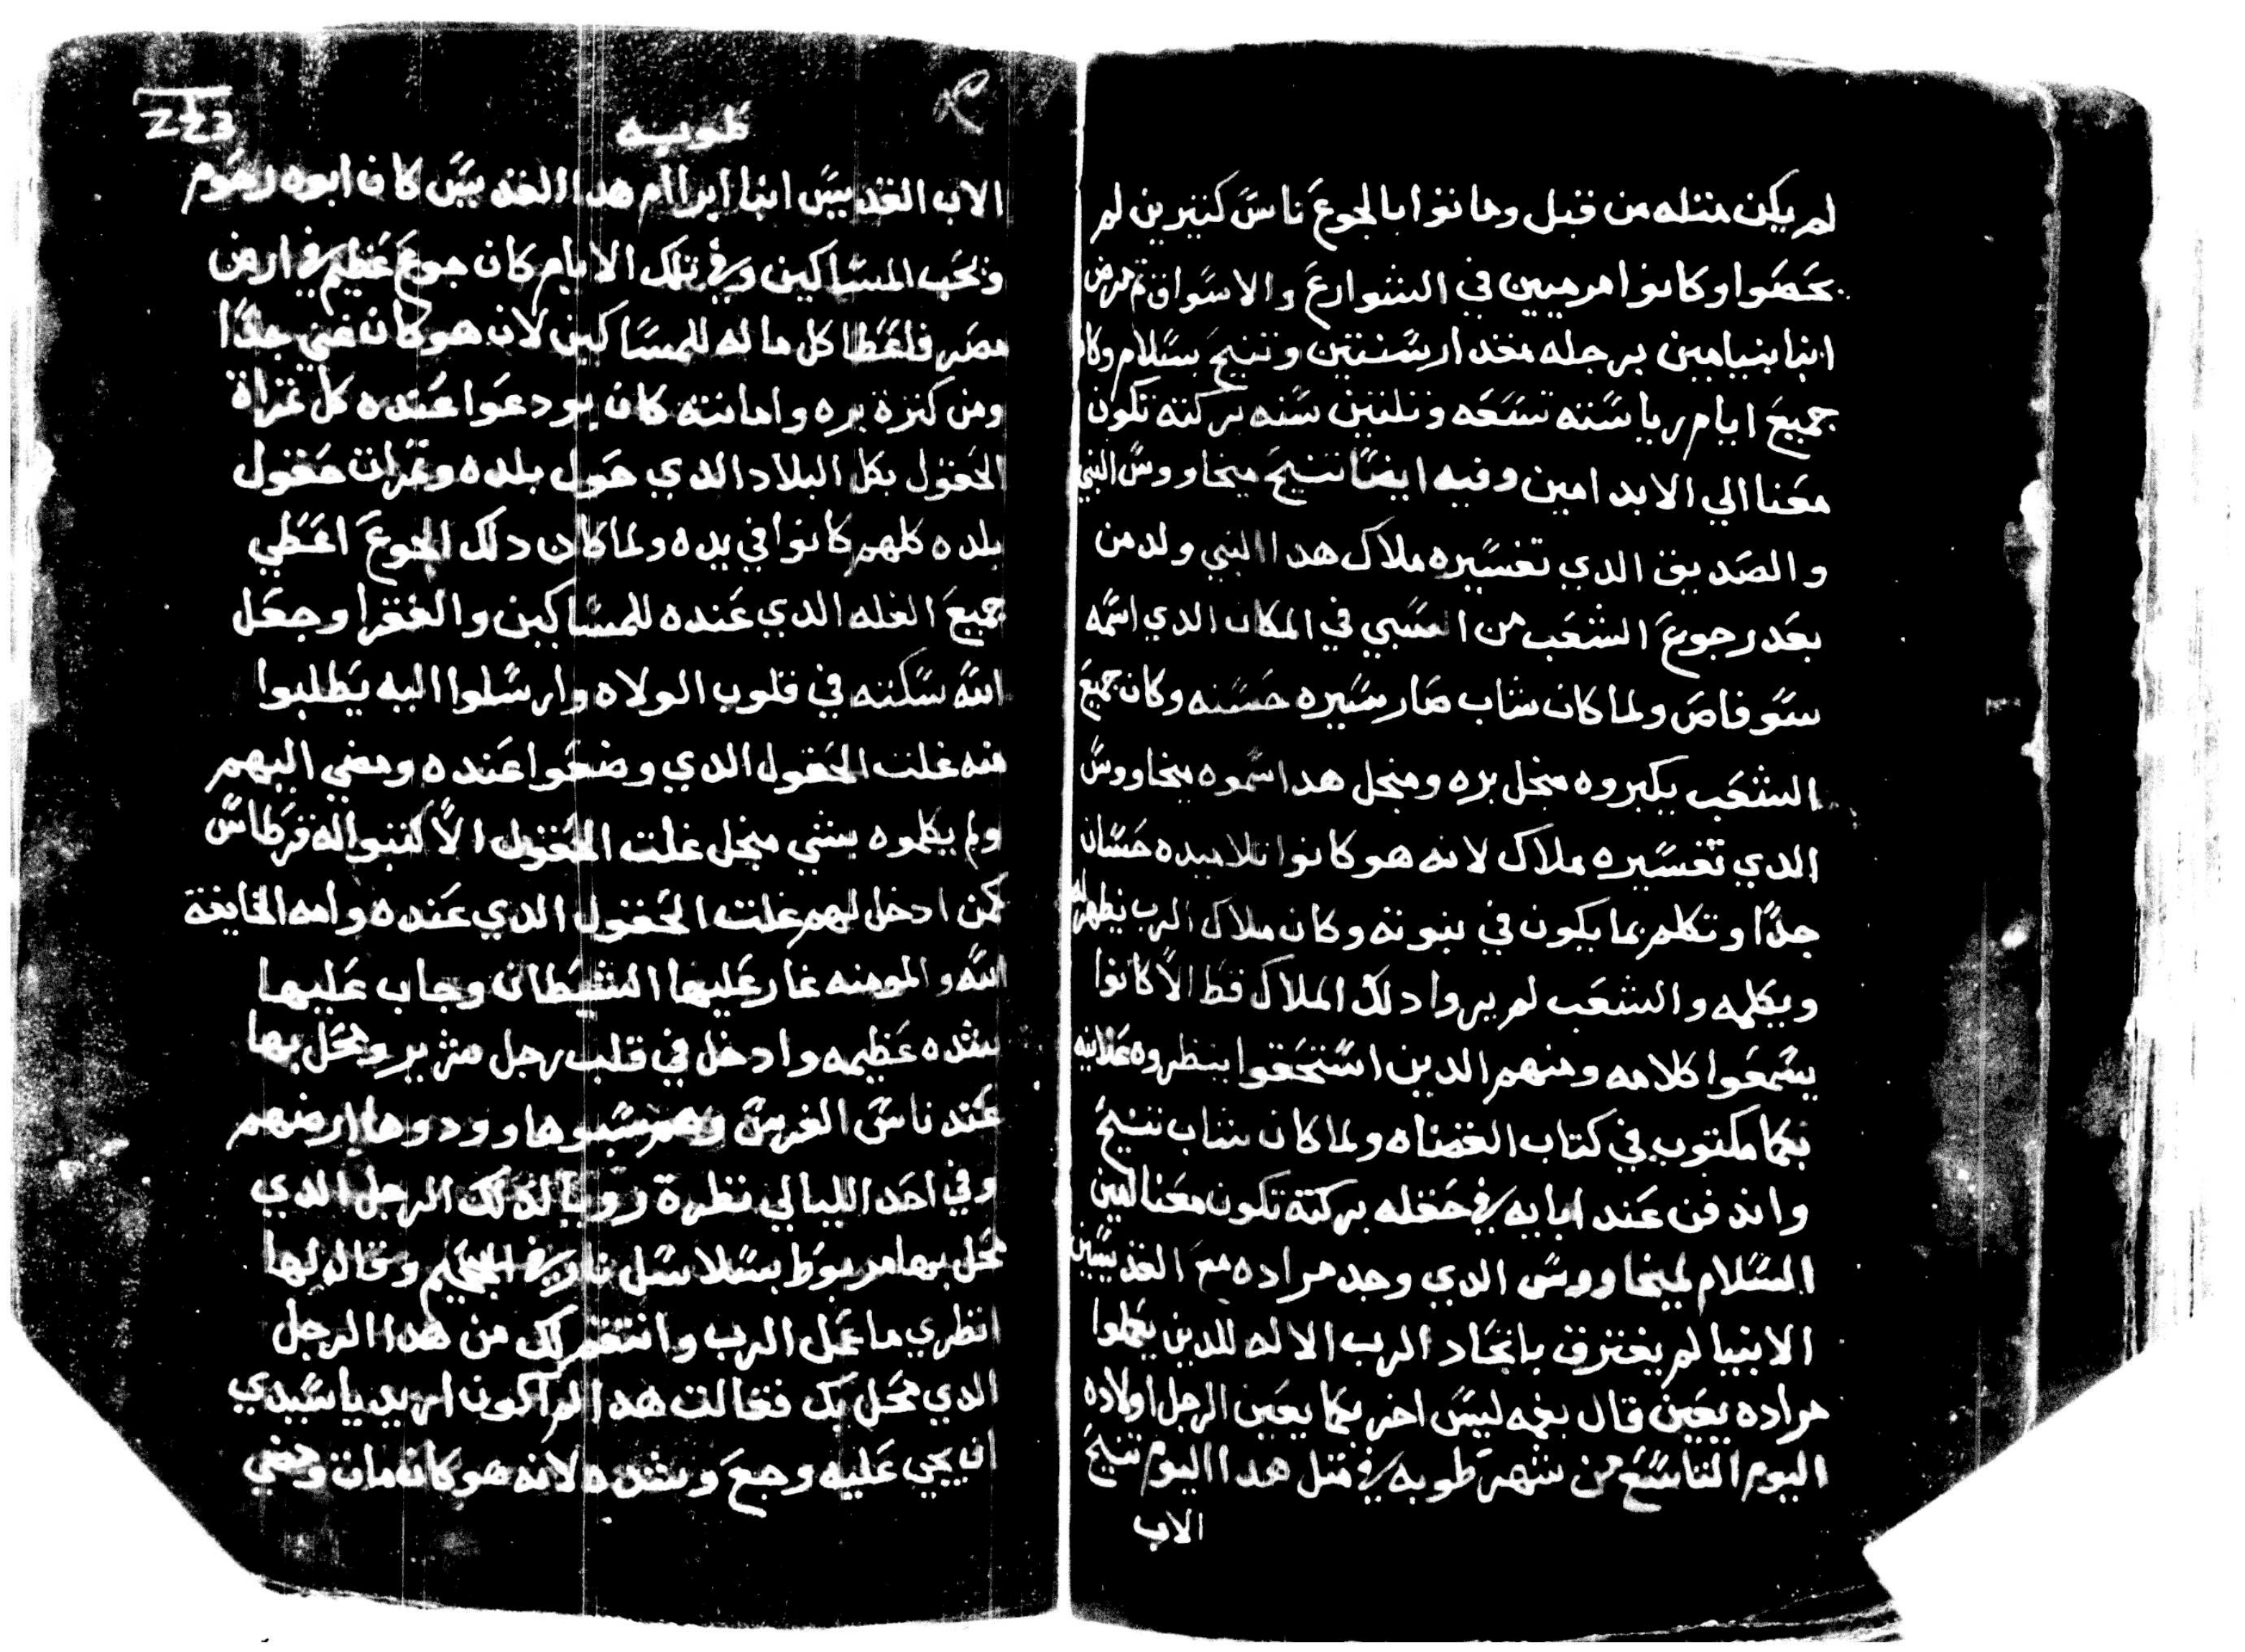 لم يكن مثله من قبل وماتوا بالجوع ناس كتيرين لم
يحصوا وكانوا مرميين في الشوارع والاسواق تم مرض
انبا بنيامين برجله مقدار سنتين وتنيح بسلام وكان
جميع ايام رياسته تسعه وتلتين سنه بركته تكون
معنا الي الابد امين وفيه ايضًا تنيح ميخاووس النبي
والصديق الدي تفسيره ملاك هدا النبي ولد من
بعد رجوع الشعب من السبي في المكان الدي اسمه
سوفاص ولما كان شاب صار سيره حسنه وكان جميع
الشعب يكبروه منجل بره ومنجل هدا سموه ميخاووس
الدي تفسيره ملاك لانه هو كانوا تلاميده حسان
جدًا وتكلم بما يكون في نبوته وكان ملاك الرب يظهر له
ويكلمه والشعب لم يروا دلك الملاك فقط الا كانوا
يسمعوا كلامه ومنهم الدين استحقوا ينظروه علانيه
بكما مكتوب في كتاب القضاه ولما كان شاب تنيح
واندفن عند ابايه في حقله بركته تكون معنا امين
السلام لميخاووس الدي وجد مراده مع القديسين
الانبيا لم يفترق باتحاد الرب الاله للدين يعملوا
مراده يعين قال بفمه ليس اخر بكما يعين الرجل اولاده
اليوم التاسع من شهر طوبه في متل هدا اليوم تنيح
الاب
طوبه
الاب القديس انبا ابراام هدا القديس كان ابوه رحوم
ونحب المساكين وفي تلك الايام كان جوع عظيم في ارض
مصر فاعطا كل ماله للمساكين لان هو كان غني جدًا
ومن كترة بره وامانته كان يودعوا عنده كل تمراة
الحقول بكل البلاد الدي حول بلده وتمرات حقول
بلده كلهم كانوا في يده ولما كان دلك الجوع اعطي
جميع الغله الدي عنده للمساكين والفقرا وجعل
الله سكته في قلوب الولاه وارسلوا اليه يطلبوا
منه غلت الحقول الدي وضعوا عنده ومضي اليهم
ولم يكلموه بشي منجل غلت الحقول الا كتبوا له قرطاس
كمن ادخل لهم غلت الحقول الدي عنده وامه الخايفة
الله والمومنه غار عليها الشيطان وجاب عليها
شده عظيمه وادخل في قلب رجل شرير ومحل بها
عند ناس الفرس وهم سبوها وودوها ارضهم
وفي احد الليالي نظرة رويا لدلك الرجل الدي
محل بها مربوط بسلاسل نار في الجحيم وقال لها
انظري ما عمل الرب وانتقم لك من هدا الرجل
الدي محل بك فقالت هدا لم اكون اريد يا سيدي
ان يجي عليه وجع وشده لانه هو كان مات ومضي